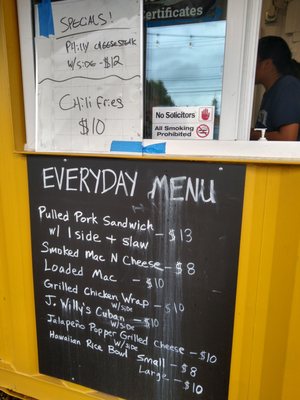 SPECIALS!
Philly cheesesteak
w/side - $12
Chili fries
$10
Certificates
No Solicitors
All Smoking
Prohibited
EVERYDAY MENU
Pulled Pork Sandwich
w/ 1 side + slaw - $13
Smoked Mac N Cheese - $8
Loaded Mac - $10
Grilled Chicken Wrap - $10
w/side
J. Willy's Cuban - $10
w/side
Jalapeño Popper Grilled Cheese - $10
w/side
Hawaiian Rice Bowl Small - $8
Large - $10